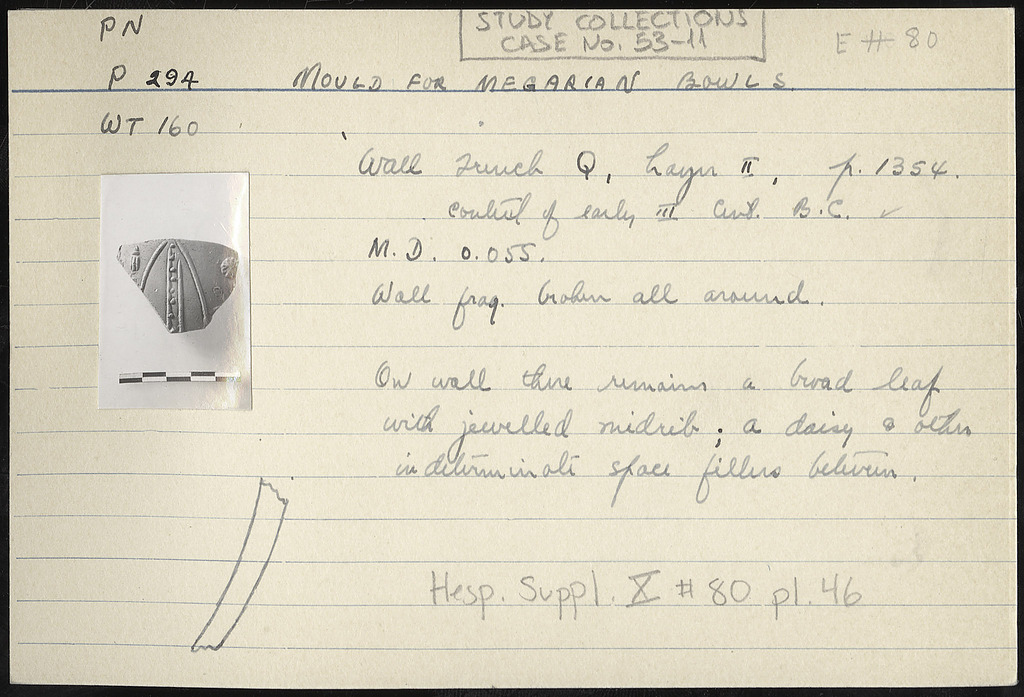 PN
STUDY COLLECTIONS
CASE No. 53-11
E # 80
P 294 MOULD FOR MEGARIAN BOWLS.
WT 160
Wall Trench Q, Layer II, p. 1354.
context of early III Cent. B.C. ✓
M.D. 0.055.
Wall frag. broken all around.
On wall there remains a broad leaf
with jewelled midrib; a daisy & other
indeterminate space fillers between.
Hesp. Suppl. X # 80 pl. 46